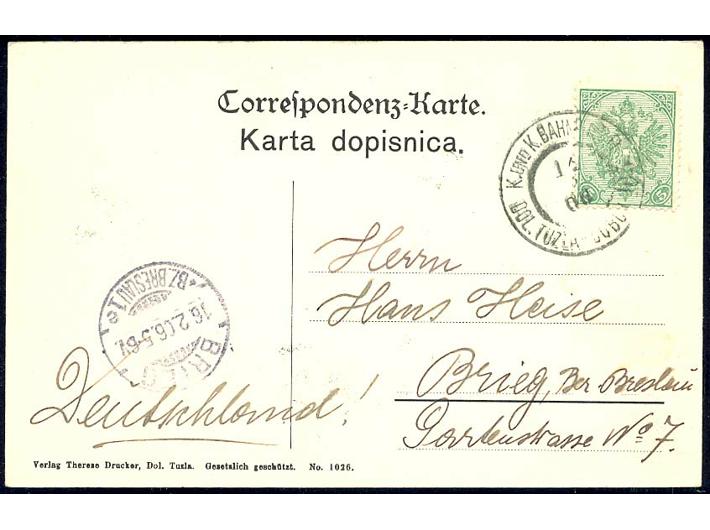 Correspondenz-Karte.
Karta dopisnica.
K. UND K. BAHN
DOL. TUZLA - DOBOJ
5
5
Herrn
Hans Heise
Brieg, Bez. Breslau
Gartenstrasse No 7.
Deutschland!
BRIEG
16.2.06.5-6V.
*BZ.BRESLAU 1 e
Verlag Therese Drucker, Dol. Tuzla. Gesetzlich geschützt. No. 1026.